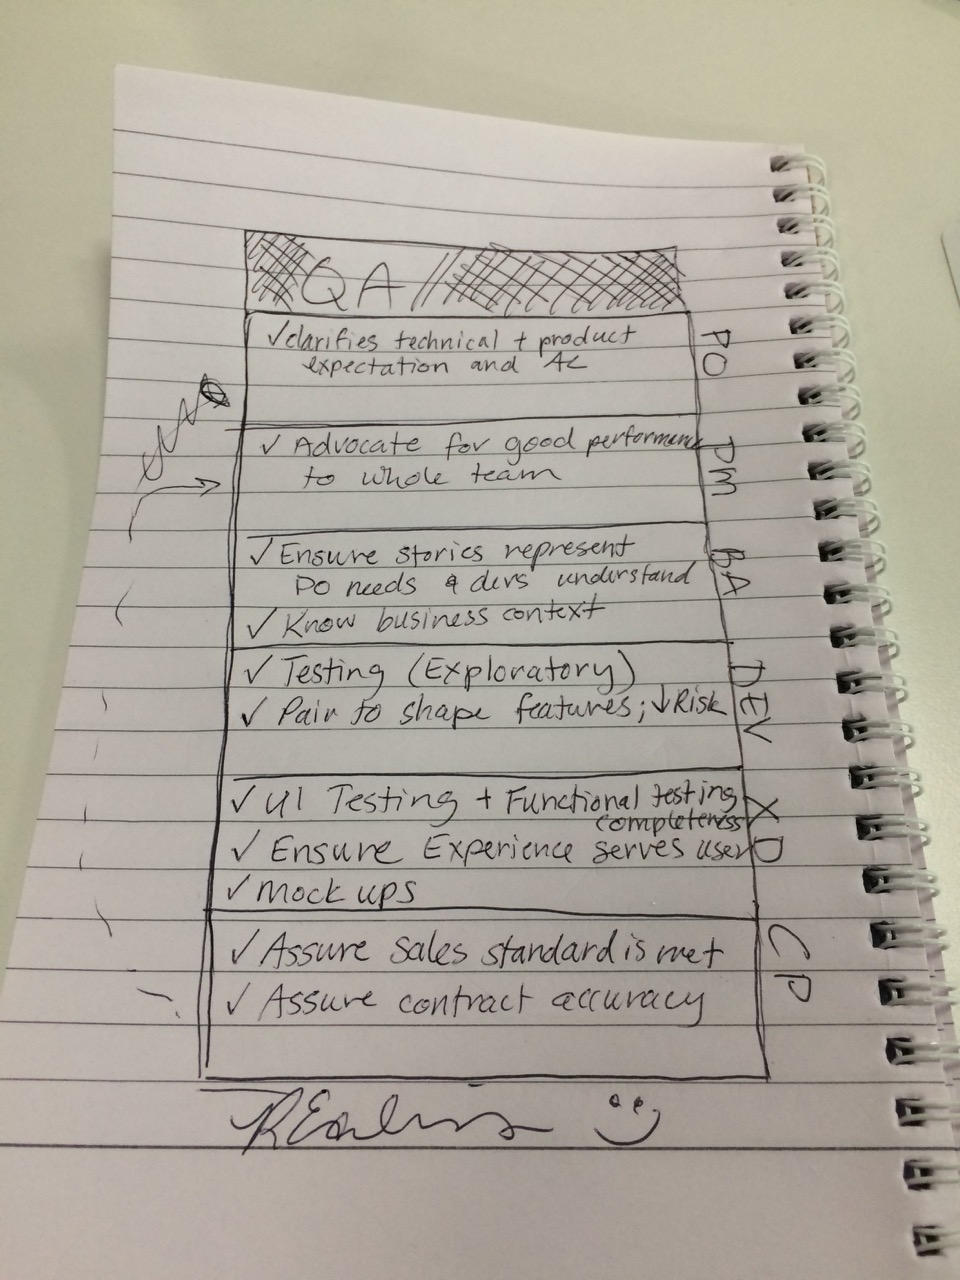 QA
✓ clarifies technical + product
expectation and AC
PO
✓ Advocate for good performance
to whole team
PM
✓ Ensure stories represent
PO needs & devs understand
✓ Know business context
BA
✓ Testing (Exploratory)
✓ Pair to shape features; ↓ Risk
DEV
✓ UI Testing + Functional testing
completeness
✓ Ensure Experience serves user
✓ Mock ups
XD
✓ Assure sales standard is met
✓ Assure contract accuracy
CP